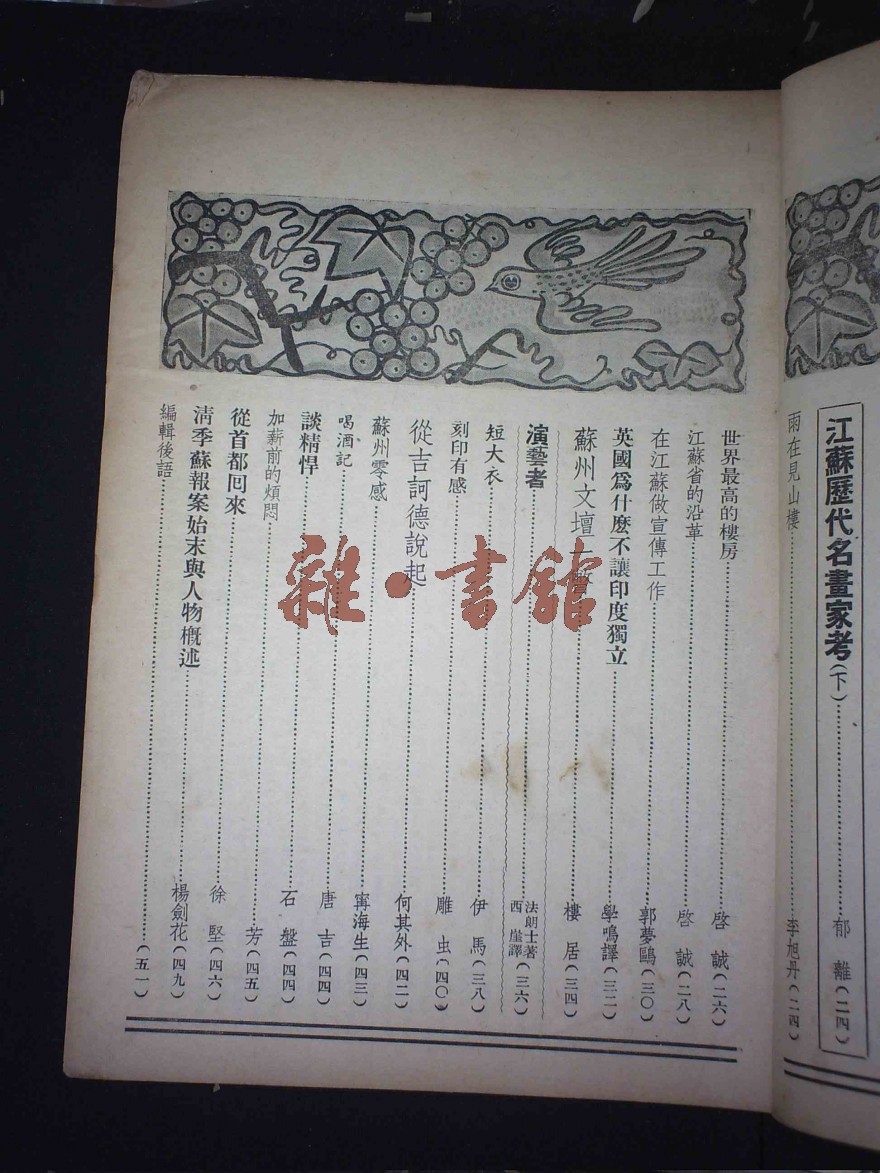 江蘇歷代名畫家考(下)……郁離(二四)
雨在見山樓……李旭丹(二四)
世界最高的樓房……啓誠(二六)
江蘇省的沿革……啓誠(二八)
在江蘇做宣傳工作……郭夢鷗(三〇)
英國爲什麽不讓印度獨立……學鳴譯(三二)
蘇州文壇一……樓居(三四)
演藝者……法朗士著 西崖譯(三六)
短大衣……伊馬(三八)
刻印有感……雕虫(四〇)
從吉訶德說起……何其外(四二)
蘇州零感……甯海生(四三)
喝酒記……唐吉(四四)
談精悍……石盤(四四)
加薪前的煩悶……芳(四五)
從首都回來……徐堅(四六)
淸季蘇報案始末與人物槪述……楊劍花(四九)
編輯後語……(五一)
雜·書館